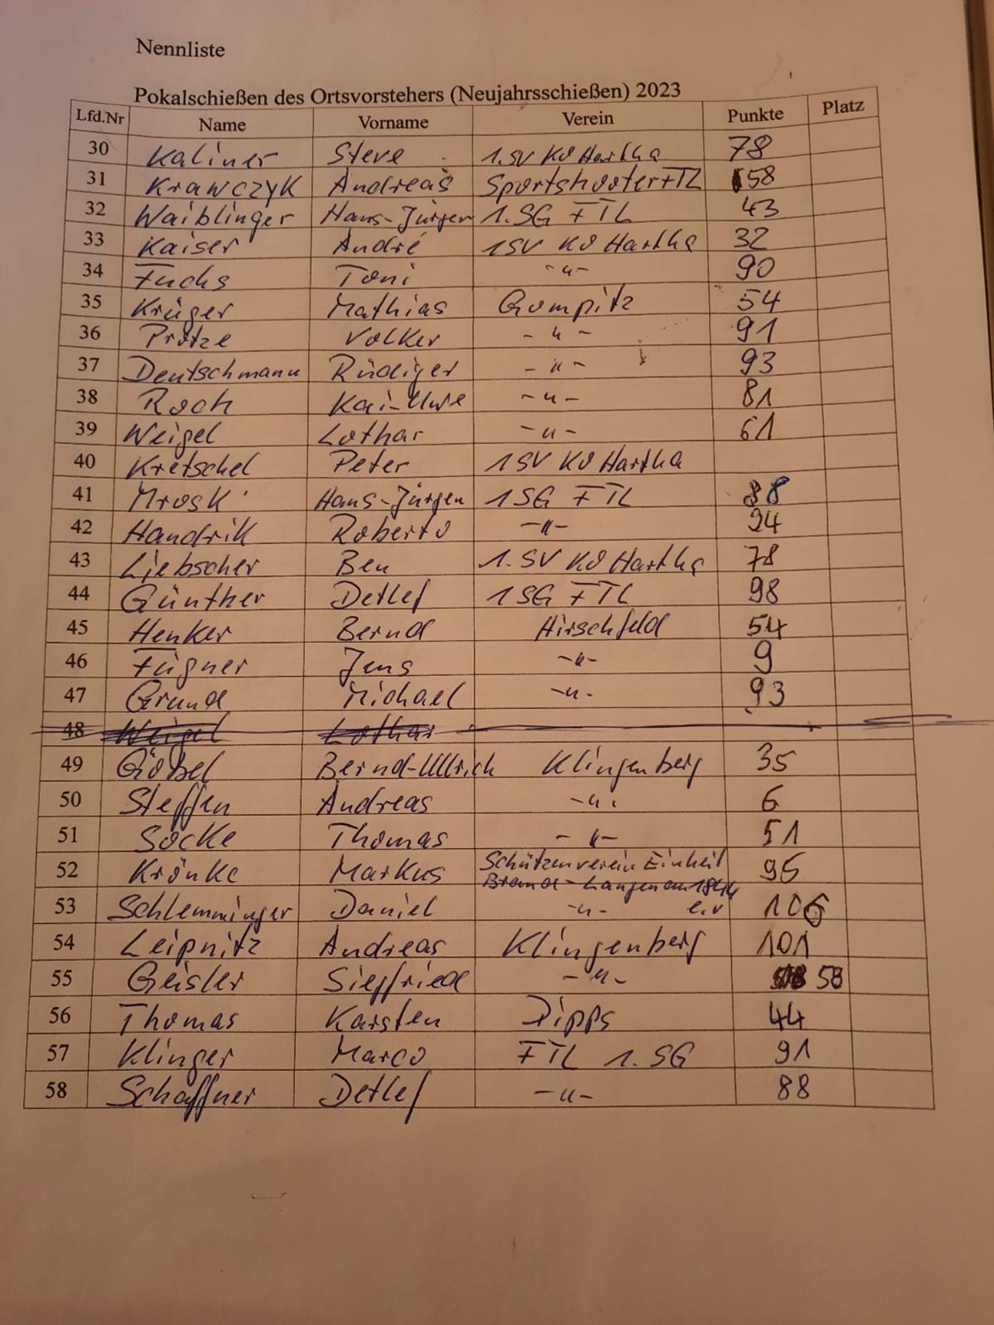 Nennliste
Pokalschießen des Ortsvorstehers (Neujahrsschießen) 2023
Lfd.Nr Name Vorname Verein Punkte Platz
30 Kaliner Steve 1.SV K8 Hartha 78
31 Krawczyk Andreas Sportshooter FTL 58
32 Waiblinger Hans-Jürgen 1.SG FTL 43
33 Kaiser André 1SV K8 Hartha 32
34 Fuchs Toni -"- 90
35 Krüger Mathias Gompitz 54
36 Protze Volker -"- 91
37 Deutschmann Rüdiger -"- 93
38 Roch Kai-Uwe -"- 81
39 Weigel Lothar -"- 61
40 Kretschel Peter 1SV K8 Hartha
41 Mrosk Hans-Jürgen 1SG FTL 88
42 Handrik Roberto -"- 94
43 Liebscher Ben 1.SV K8 Hartha 78
44 Günther Detlef 1SG FTL 98
45 Henker Bernd Hirschfeld 54
46 Fügner Jens -"- 9
47 Grund Michael -"- 93
48 Weigel Lothar
49 Göbel Bernd-Ullrich Klingenberg 35
50 Steffen Andreas -"-
6
51 Söcke Thomas -"- 51
52 Krönke Markus Schützenverein Einheit 95
Brand-Langenau 1844
53 Schlemminger Daniel -"- e.V 106
54 Leipnitz Andreas Klingenberg 101
55 Geisler Siegfried -"- 58
56 Thomas Karsten Dipps 44
57 Klinger Marco FTL 1.SG 91
58 Schaffner Detlef -"- 88